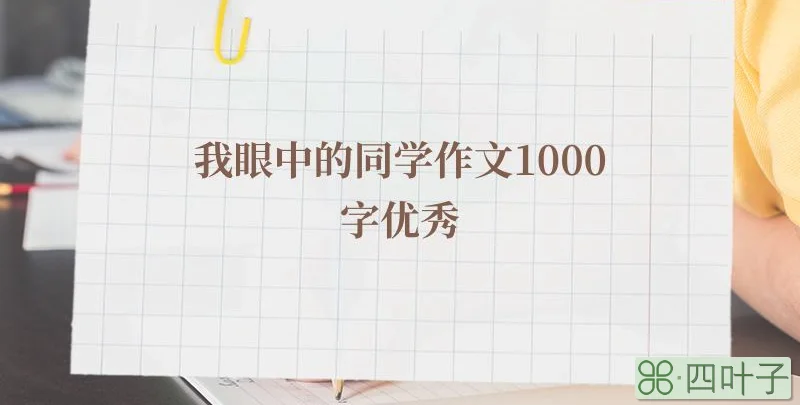 我眼中的同学作文1000
字优秀
⌘·四叶子